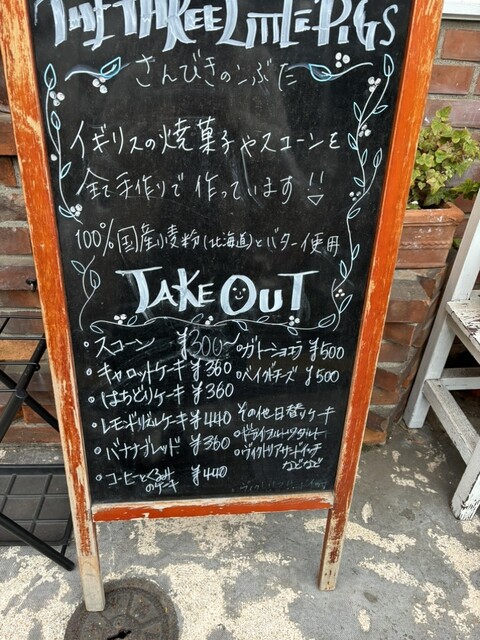 THE THREE LITTLE PIGS
さんびきのこぶた
イギリスの焼菓子やスコーンを
全て手作りで作っています!!
100%国産小麦粉(北海道)とバター使用
TAKE OUT
・スコーン ¥300~
・キャロットケーキ ¥360
・はちどりケーキ ¥360
・レモンドリズルケーキ ¥440
・バナナブレッド ¥360
・コーヒーとくるみのケーキ ¥440
・ガトーショコラ ¥500
・ベイクドチーズ ¥500
その他日替りケーキ
・ドライフルーツタルト
・ヴィクトリアサンドイッチ
などなど